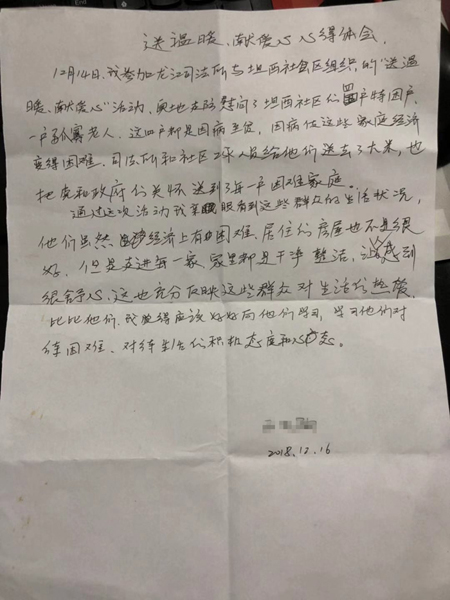 送温暖、献爱心心得体会
12月14日，我参加龙江司法所与坦西社区组织的“送温
暖、献爱心”活动，实地走访慰问了坦西社区的四户特困户，
一户孤寡老人。这四户都是因病至贫，因病使这些家庭经济
变得困难。司法所和社区工作人员给他们送去了大米，也
把党和政府的关怀送到了每一户困难家庭。
通过这次活动我亲眼看到这些群众的生活状况，
他们虽然经济上有困难，居住的房屋也不是很
好，但是走进每一家，家里都是干净整洁，让我感到
很舒心，这也充分反映这些群众对生活的热爱。
比比他们，我觉得应该好好向他们学习，学习他们对
待困难、对待生活的积极态度和心态。
2018.12.16